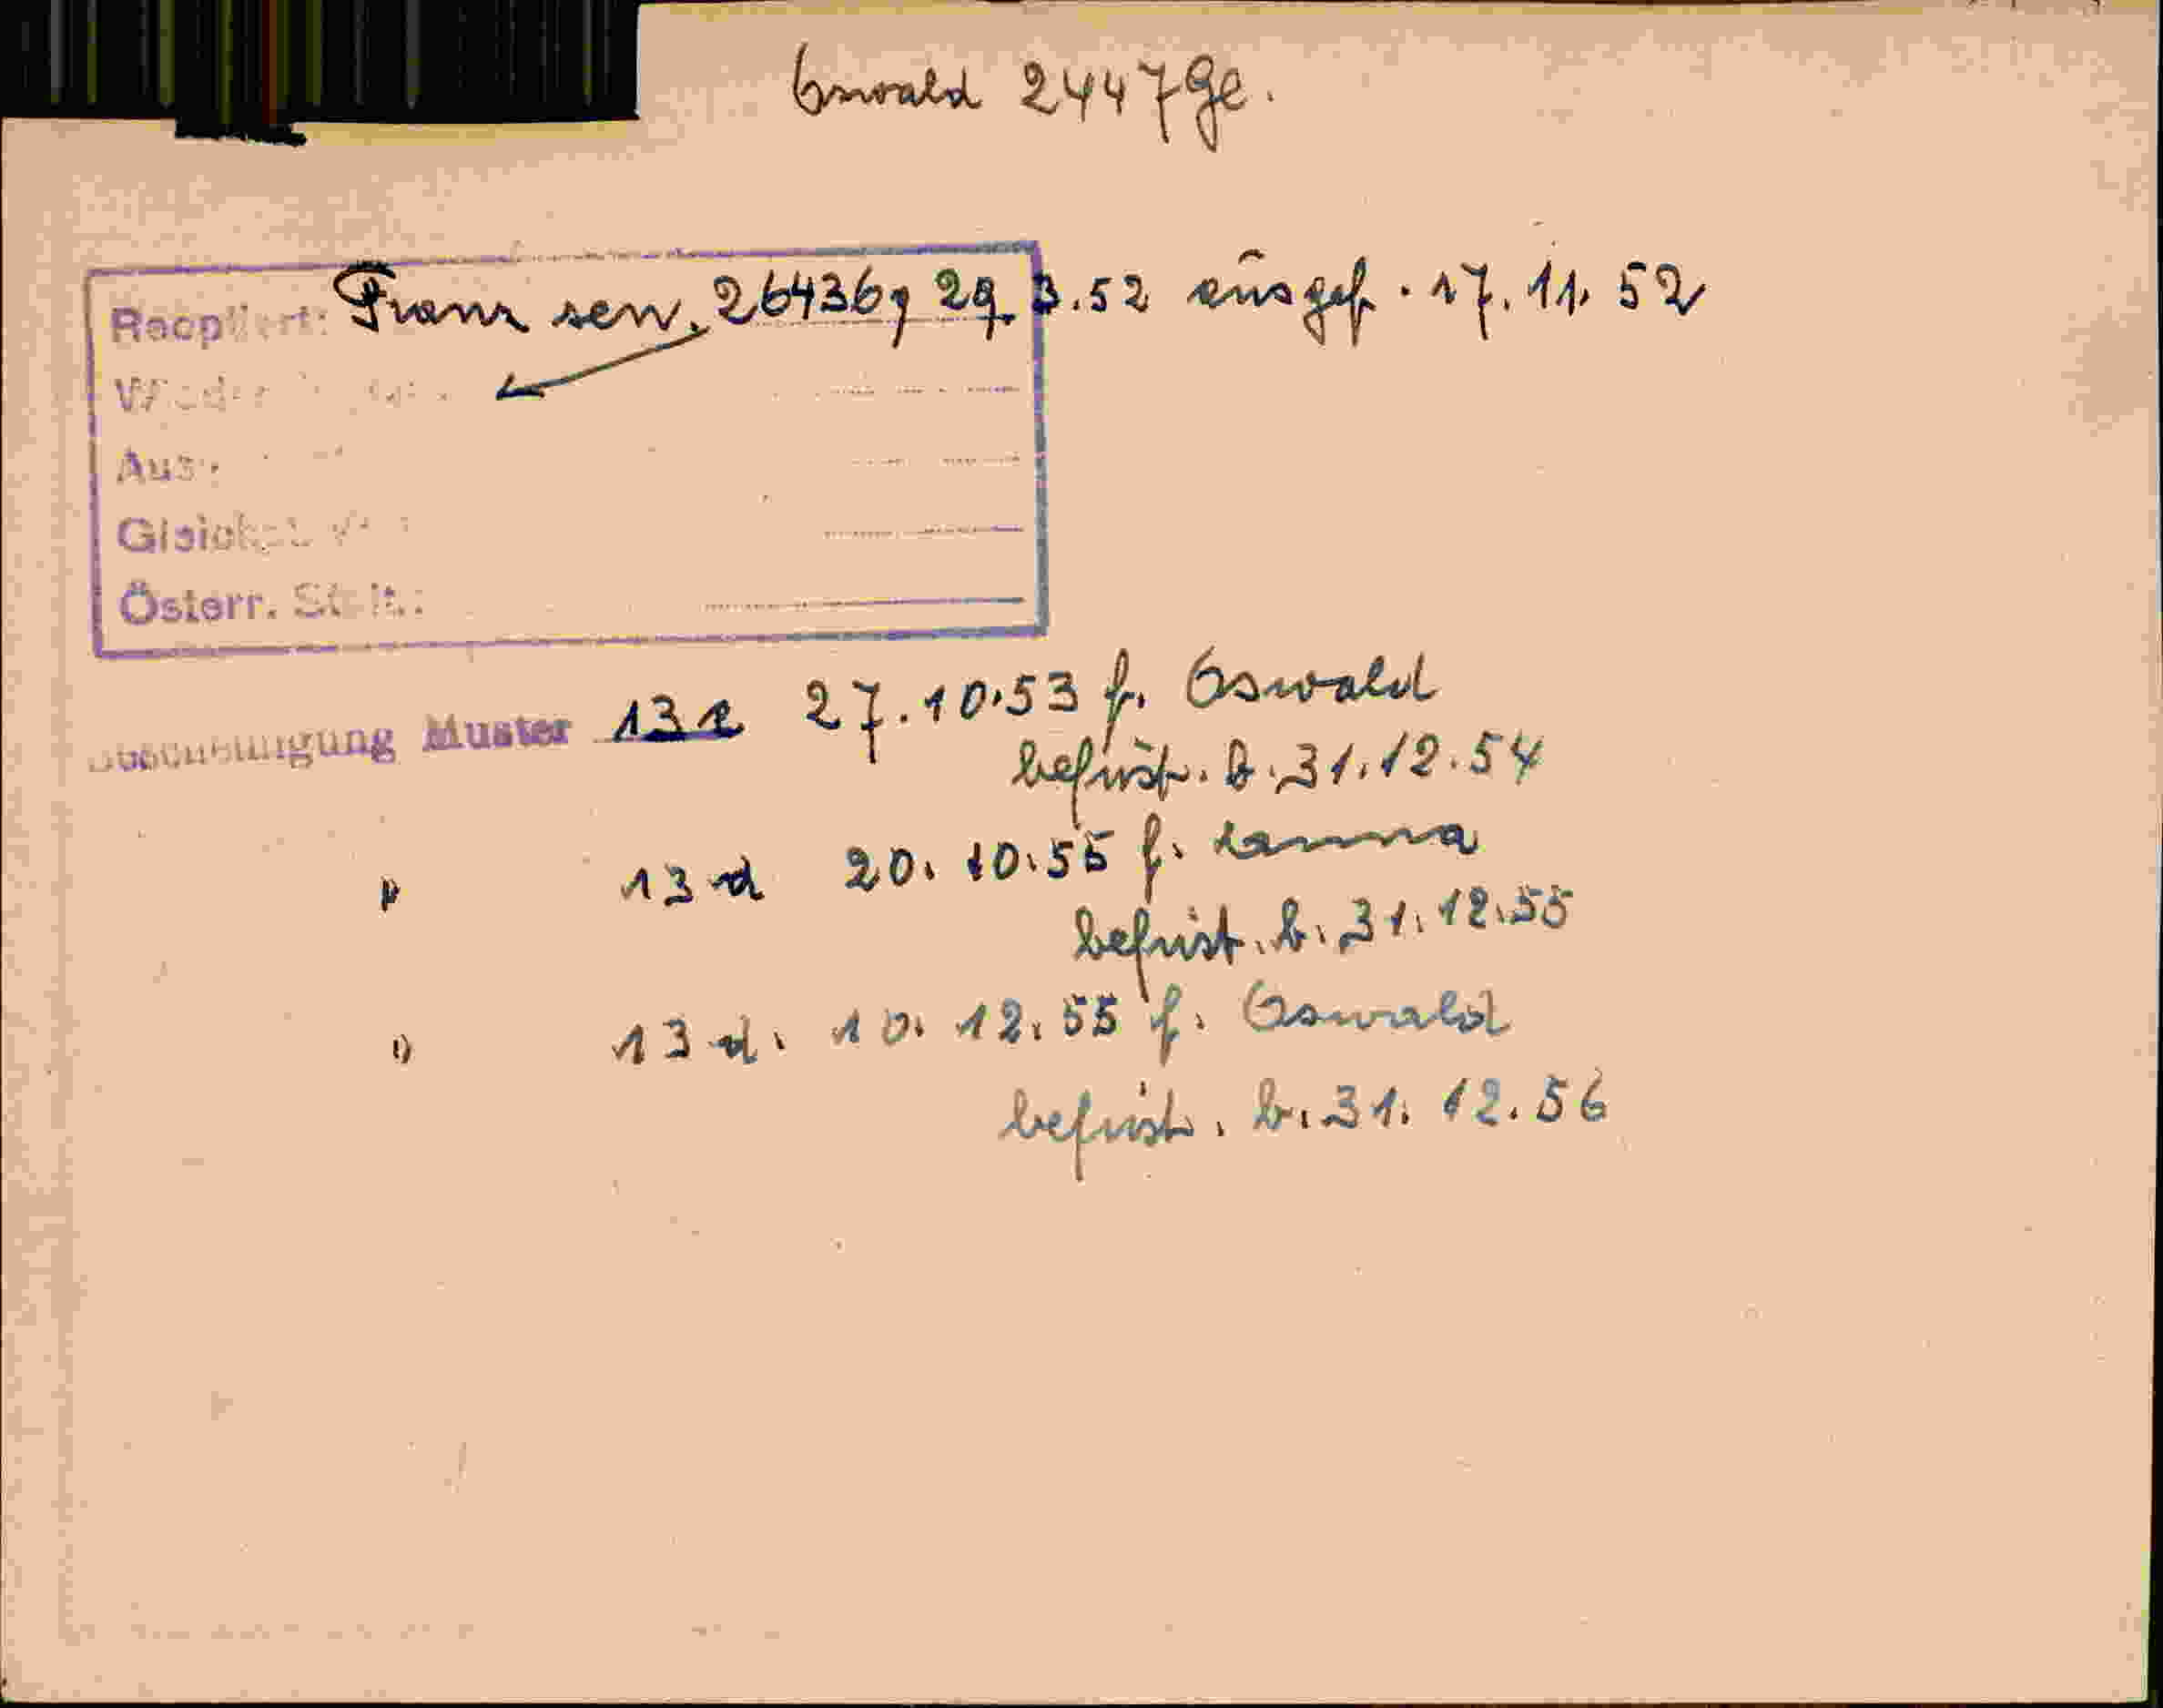 Oswald 2447 Ge.
Reoptiert: Franz sen. 264369 29.3.52 ausgef. 17.11.52
Österr. St.
Muster 13 e 27.10.53 f. Oswald
befrist. b. 31.12.54
" 13 d 20.10.55 f.
befrist. b. 31.12.55
" 13 d. 10.12.55 f. Oswald
befrist. b. 31.12.56